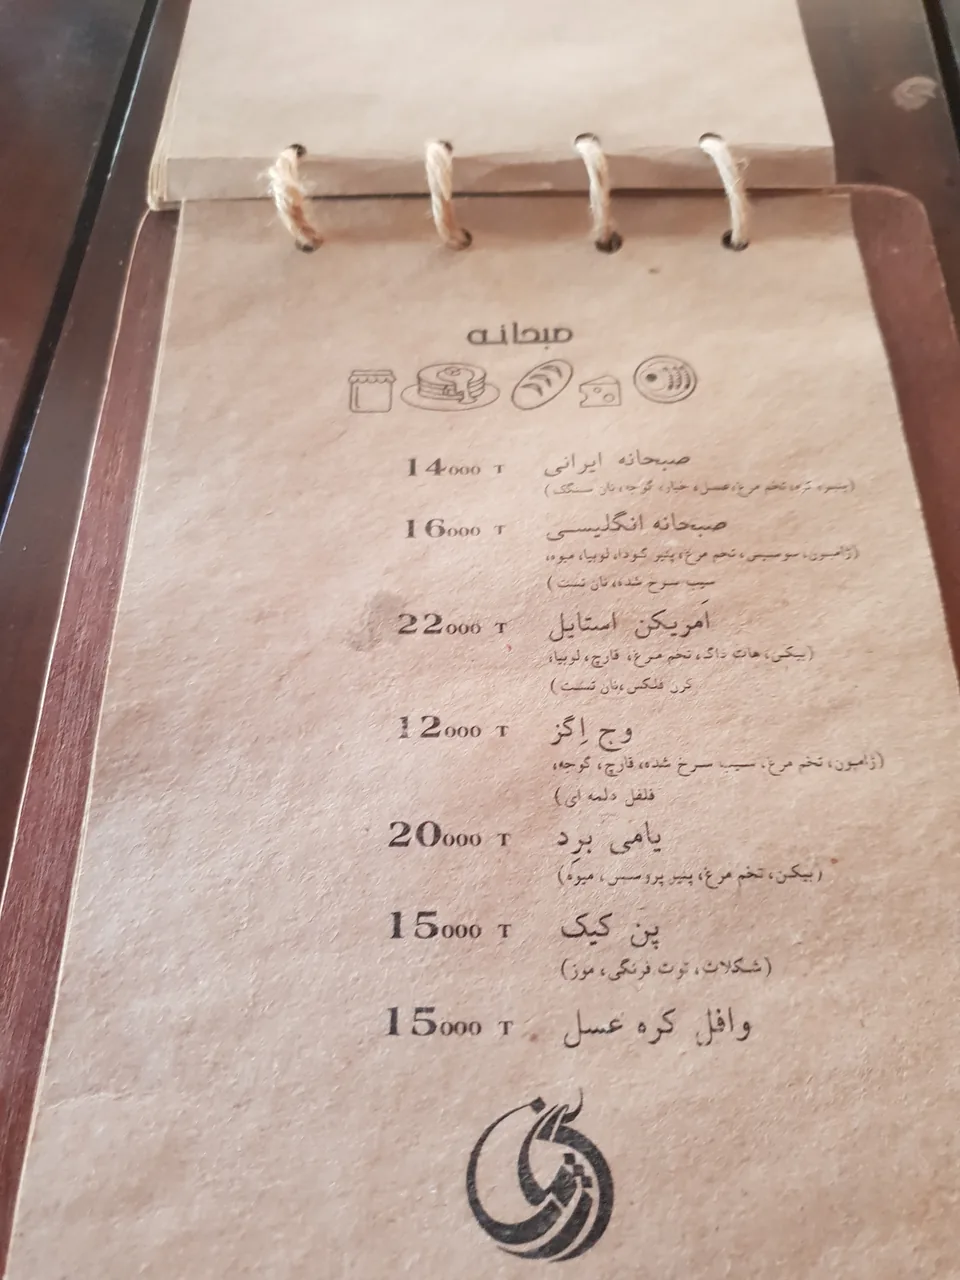 صبحانه
صبحانه ایرانی 14000 T
(پنیر، کره، تخم مرغ، عسل، خیار، گوجه، نان سنگک)
صبحانه انگلیسی 16000 T
(ژامبون، سوسیس، تخم مرغ، پنیر گودا، لوبیا، میوه،
سیب سرخ شده، نان تست)
اَمریکن استایل 22000 T
(بیکن، هات داگ، تخم مرغ، قارچ، لوبیا،
کرن فلکس، نان تست)
وج اِگز 12000 T
(ژامبون، تخم مرغ، سیب سرخ شده، قارچ، گوجه،
فلفل دلمه ای)
یامی برِد 20000 T
(بیکن، تخم مرغ، پنیر پروسس، میوه)
پن کیک 15000 T
(شکلات، توت فرنگی، موز)
وافل کره عسل 15000 T